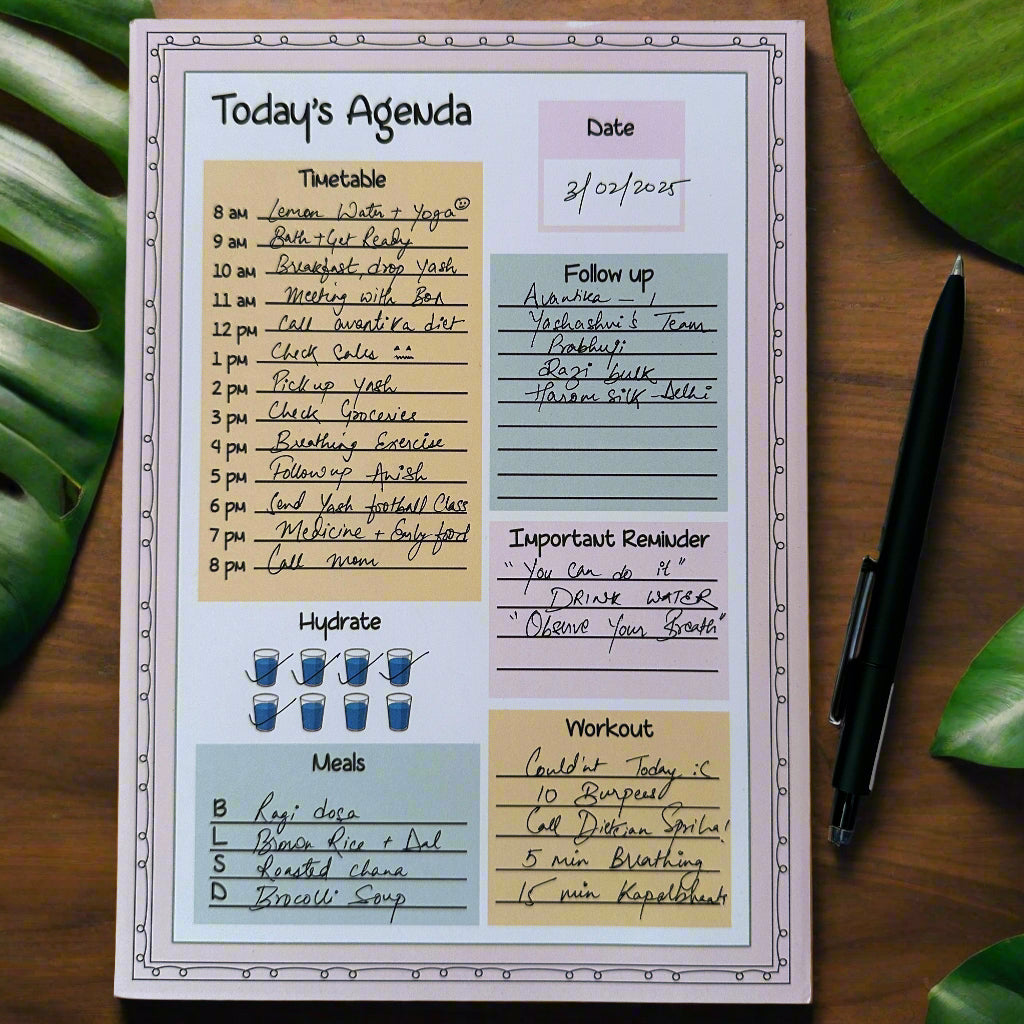 Today's Agenda
Date
3/02/2025
Timetable
8 AM Lemon Water + Yoga
9 AM Bath + Get Ready
10 AM Breakfast, drop Yash
11 AM Meeting with Bon
12 PM Call avantika diet
1 PM Check Sales
2 PM Pick up Yash
3 PM Check Groceries
4 PM Breathing Exercise
5 PM Follow up Anish
6 PM Send Yash football Class
7 PM Medicine + Early food
8 PM Call mom
Follow up
Avantika - 1
Yashashvi's Team
Prabhuji
Razi bulk
Harom Silk - Delhi
Important Reminder
"You Can do it"
DRINK WATER
"Observe Your Breath"
Hydrate
Meals
B Ragi dosa
L Brown Rice + Dal
S Roasted chana
D Brocolli Soup
Workout
Could'nt Today :C
10 Burpees
Call Dietcian
5 min Breathing
15 min Kapalbhaati